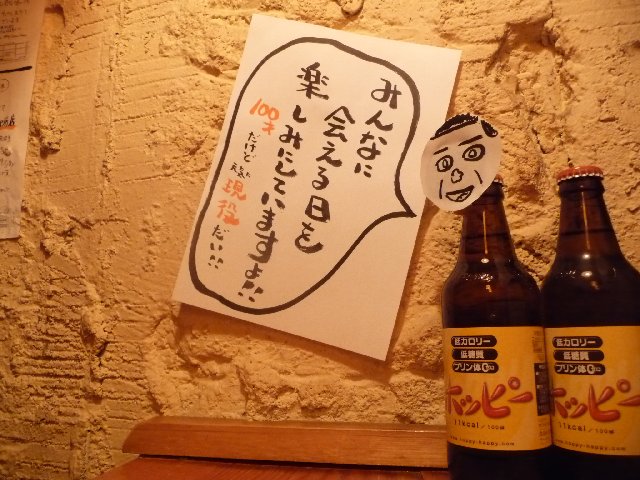 みんなに
会える日を
楽しみにしていますよ!!
100才
だけど
現役
だい!!
低カロリー
低糖質
プリン体0
ホッピー
11kcal/100ml
www.hoppy-happy.com
低カロリー
低糖質
プリン体0
ホッピー
11kcal/100ml
www.hoppy-happy.com